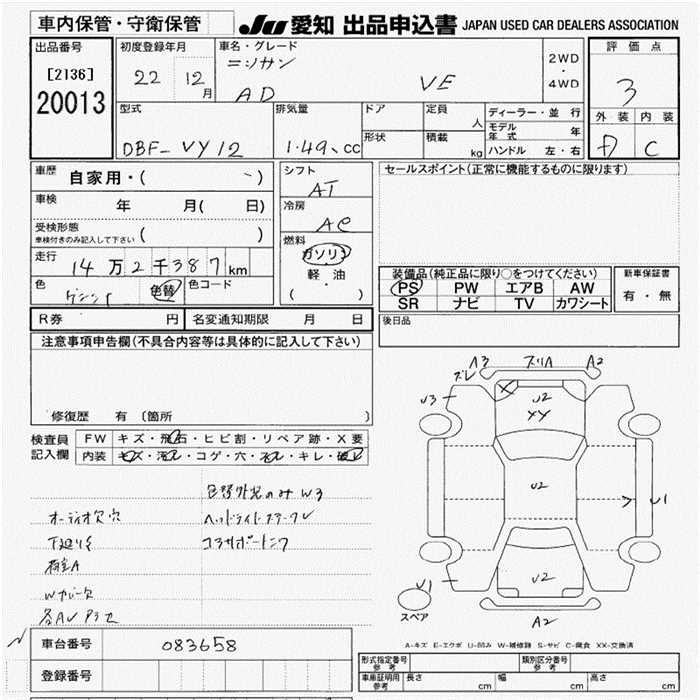 車内保管・守衛保管 JU 愛知 出品申込書 JAPAN USED CAR DEALERS ASSOCIATION
出品番号 初度登録年月 車名・グレード 2WD・4WD 評価点
[2136] 22 12月 ニッサン VE 3
20013 AD
型式 排気量 ドア 定員 人 ディーラー・並 行 外装 内装
DBF-VY12 1.49 cc 形状 積載 kg モデル年式 年 D C
ハンドル 左・右
車歴 自家用・( ) シフト AT セールスポイント(正常に機能するものに限ります)
車検 年 月( 日) 冷房 AC
受検形態 ( )
車検付きのみ記入して下さい
燃料 ガソリン
走行 14万2千387km 軽油
( ・ )
装備品(純正品に限り○をつけてください) 新車保証書
色 色替 色コード PS PW エアB AW 有・無
SR ナビ TV カワシート
R券 円 名変通知期限 月 日 後日品
注意事項申告欄(不具合内容等は具体的に記入して下さい)
修復歴 有 (箇所 )
検査員記入欄 FW キズ・飛石・ヒビ割・リペア跡・X要
内装 キズ・汚れ・コゲ・穴・スレ・キレ・破レ
A3 ズリA A2
ズレ
U3 U2
XY
U2
U1
U2
U1
スペア
A2
色替外光のみ W3
オーディオ欠穴
下廻りS
荷室A
Wカバー欠
A-キズ E-エクボ U-凹み W-補修跡 S-サビ C-腐食 XX-交換済
車台番号 083658
登録番号
型式指定番号 参考 類別区分番号 参考
車庫証明用 参考 長さ cm 幅 cm 高さ cm